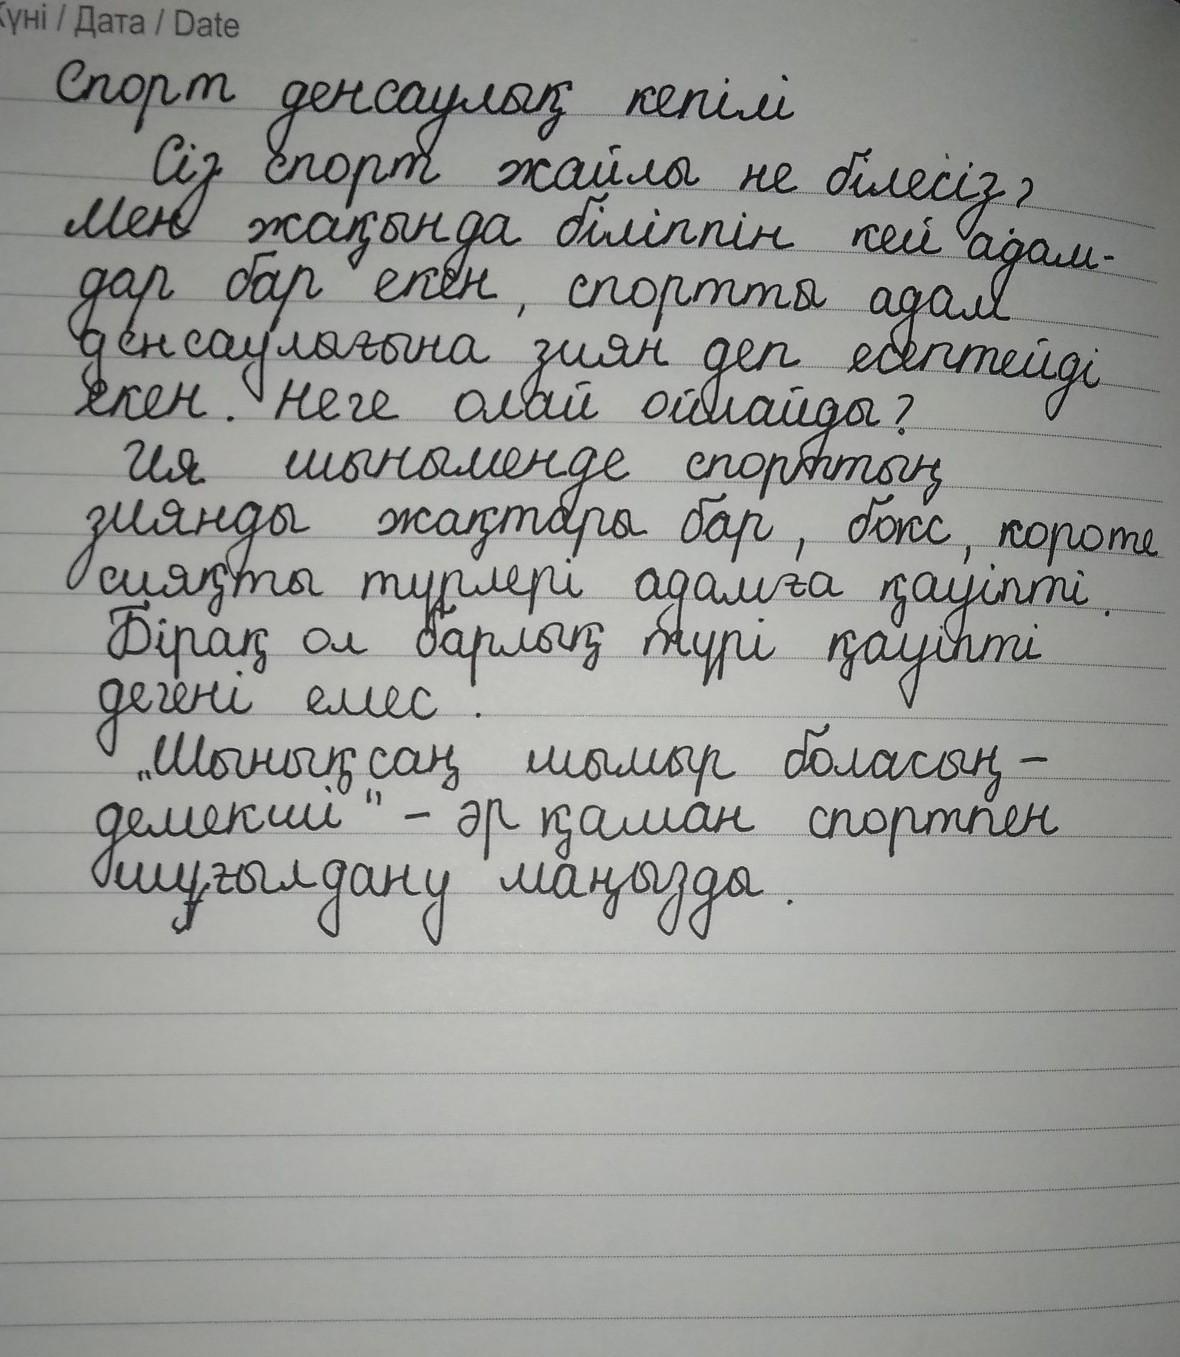 Күні / Дата / Date
Спорт денсаулық кепілі
Сіз спорт жайлы не білесіз?
Мен жақында біліппін кей адам-
дар бар екен, спортты адам
денсаулығына зиян деп есептейді
екен. Неге олай ойлайды?
Ия шыныменде спорттың
зиянды жақтары бар, бокс, короте
сияқты түрлері адамға қауіпті.
Бірақ ол барлық түрі қауіпті
дегені емес.
„Шынықсаң шымыр боласың –
демекші" – әр қаман спортпен
шұғылдану маңызды.